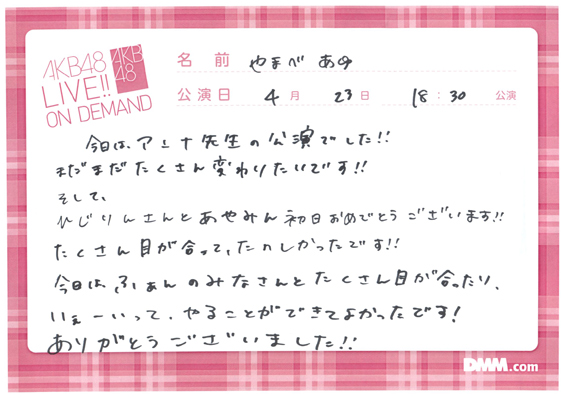 AKB48
LIVE!!
ON DEMAND
AKB
48
名前 やまべ あゆ
公演日 4月 23日 18:30 公演
今日は、アニナ先生の公演でした!!
まだまだたくさん変わりたいです!!
そして、
ひじりんさんとあやみん初日おめでとうございます!!
たくさん目が合って、たのしかったです!!
今日は、ふぁんのみなさんとたくさん目が合ったり、
いぇーいって、やることができてよかったです!
ありがとうございました!!
DMM.com